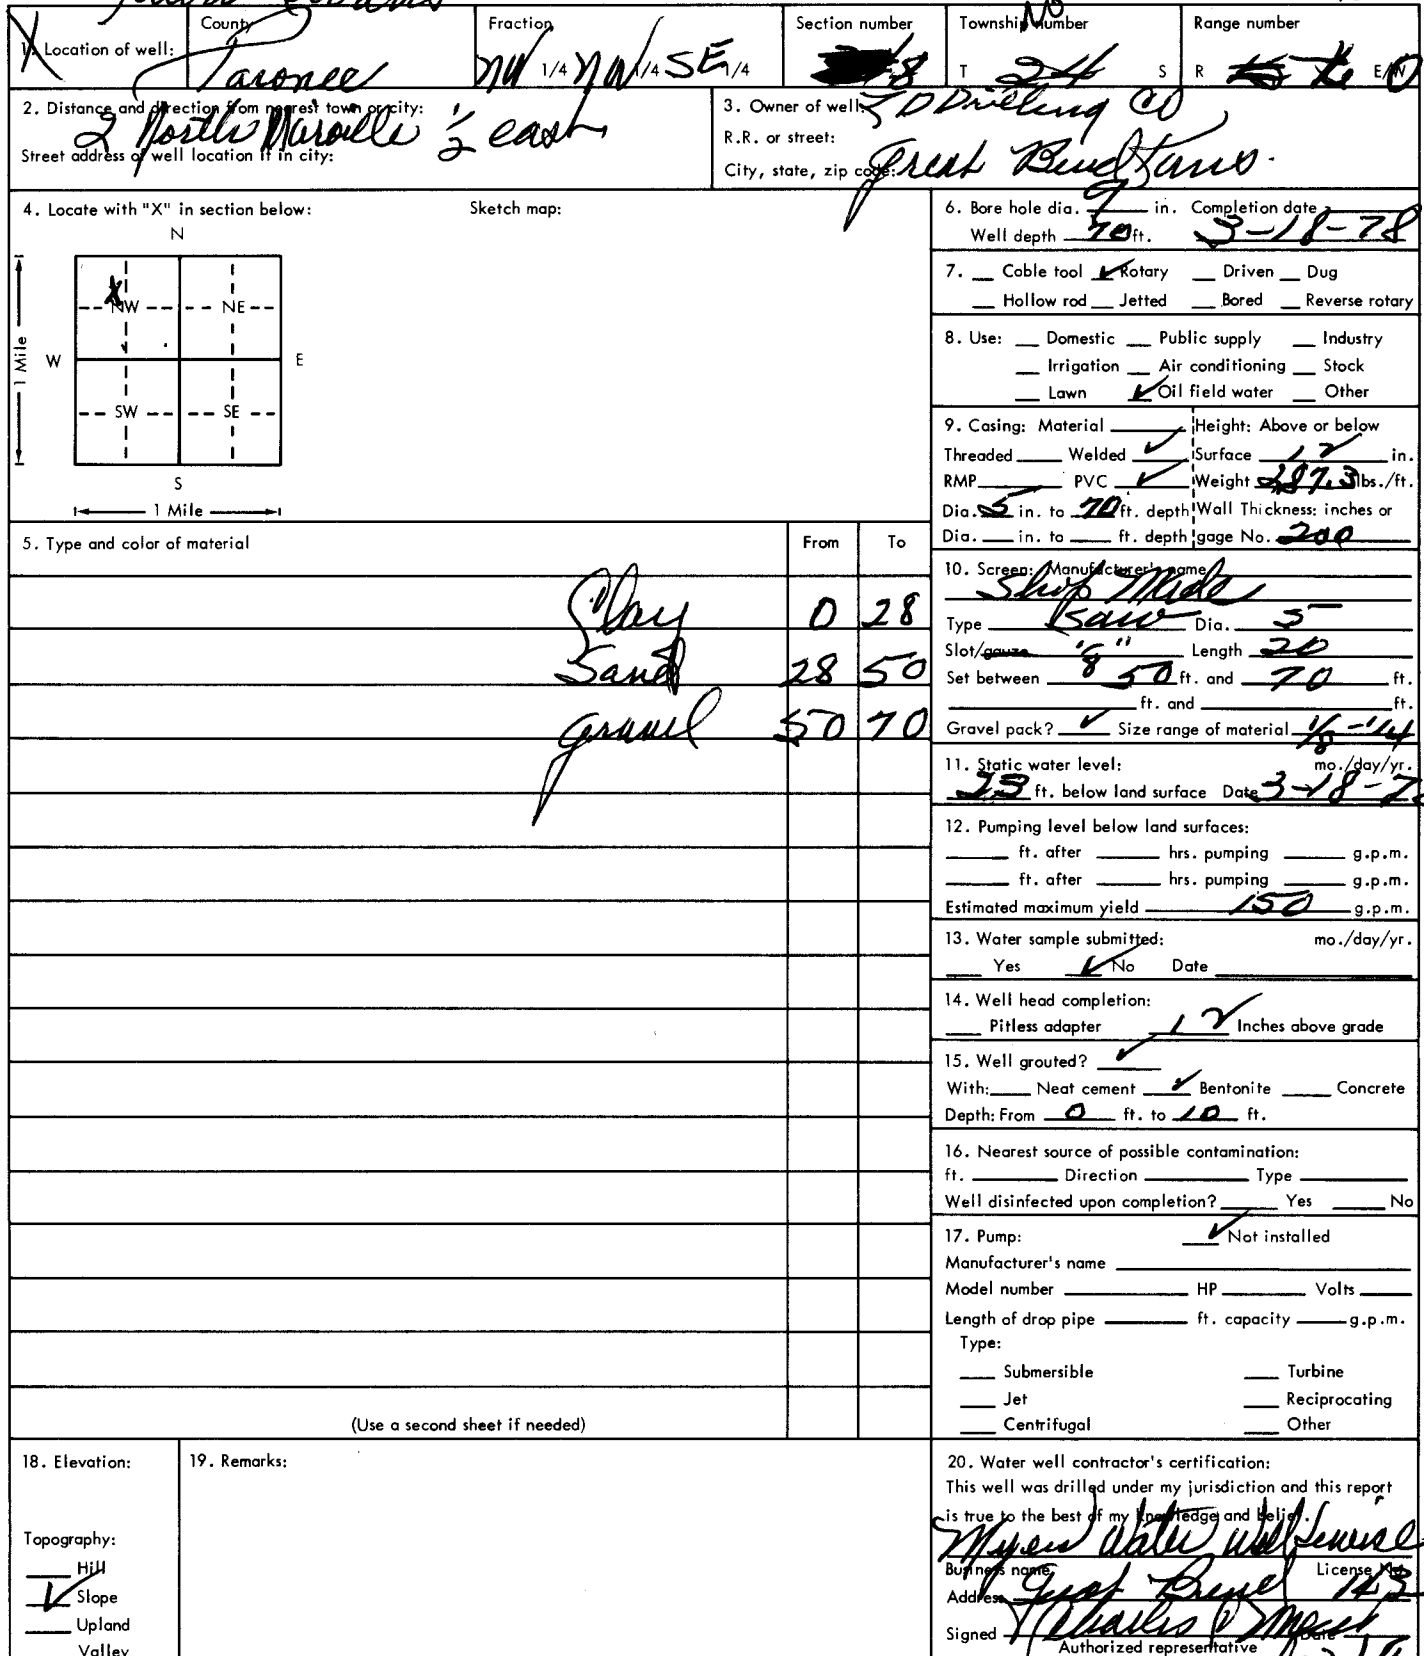 County Fraction Section number Township number Range number
1. Location of well: NW 1/4 NW 1/4 SE 1/4 8 T 24 S R E/W
2. Distance and direction from nearest town or city: 3. Owner of well: Drilling Co
2 North 1/2 east
Street address of well location if in city: R.R. or street:
City, state, zip code: Great Bend Kans.
4. Locate with "X" in section below: Sketch map:
N
X
NW NE
W E
1 Mile
SW SE
S
1 Mile
5. Type and color of material From To
Clay 0 28
Sand 28 50
gravel 50 70
(Use a second sheet if needed)
6. Bore hole dia. 9 in. Completion date
Well depth 70 ft. 3-18-78
7. Cable tool ✓ Rotary Driven Dug
Hollow rod Jetted Bored Reverse rotary
8. Use: Domestic Public supply Industry
Irrigation Air conditioning Stock
Lawn ✓ Oil field water Other
9. Casing: Material Height: Above or below
Threaded Welded ✓ Surface 12 in.
RMP PVC ✓ Weight 287.3 lbs./ft.
Dia. 5 in. to 70 ft. depth Wall Thickness: inches or
Dia. in. to ft. depth gage No. 200
10. Screen: Manufacturer's name
Shop Made
Type Saw Dia. 5
Slot/gauze "8" Length 20
Set between 50 ft. and 70 ft.
ft. and ft.
Gravel pack? ✓ Size range of material 1/8 - 1/4
11. Static water level: mo./day/yr.
23 ft. below land surface Date 3-18-7
12. Pumping level below land surfaces:
ft. after hrs. pumping g.p.m.
ft. after hrs. pumping g.p.m.
Estimated maximum yield 150 g.p.m.
13. Water sample submitted: mo./day/yr.
Yes ✓ No Date
14. Well head completion:
Pitless adapter 12 Inches above grade
15. Well grouted? ✓
With: Neat cement ✓ Bentonite Concrete
Depth: From 0 ft. to 10 ft.
16. Nearest source of possible contamination:
ft. Direction Type
Well disinfected upon completion? Yes No
17. Pump: ✓ Not installed
Manufacturer's name
Model number HP Volts
Length of drop pipe ft. capacity g.p.m.
Type:
Submersible Turbine
Jet Reciprocating
Centrifugal Other
18. Elevation: 19. Remarks:
Topography:
Hill
✓ Slope
Upland
Valley
20. Water well contractor's certification:
This well was drilled under my jurisdiction and this report
is true to the best of my knowledge and belief.
Myers Water Well Service
Business name License No.
Address Great Bend 143
Signed Charles Date
Authorized representative